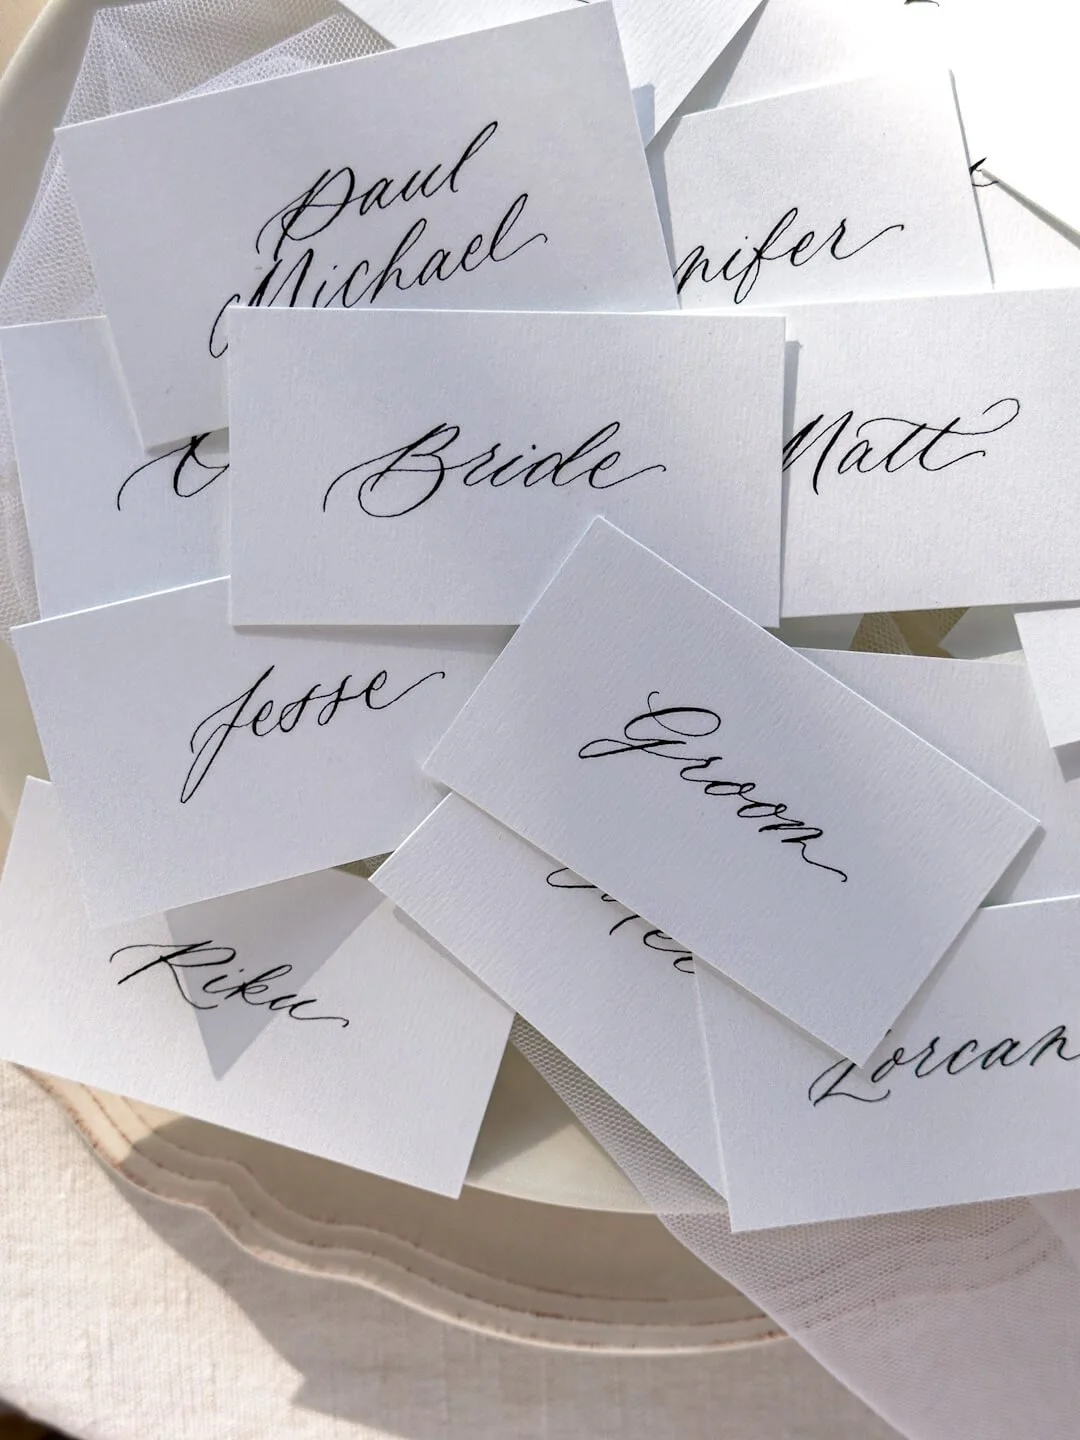 Paul
Michael
nifer
Bride
Matt
Jesse
Groom
Riku
Lorcan